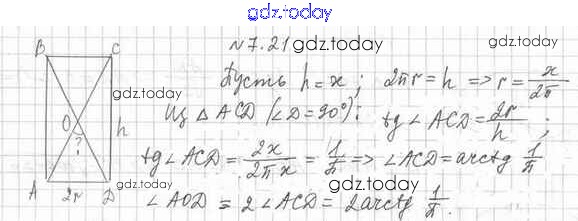 gdz.today
B C
№7.21 gdz.today gdz.today
Пусть h=x; 2πr=h => r=x/2π
gdz.today
Из △ACD (∠D=90°): tg∠ACD=2r/h;
O ? h
tg∠ACD=2x/2πx=1/π => ∠ACD=arctg 1/π
A 2r D
gdz.today gdz.today
∠AOD=2∠ACD=2arctg 1/π.